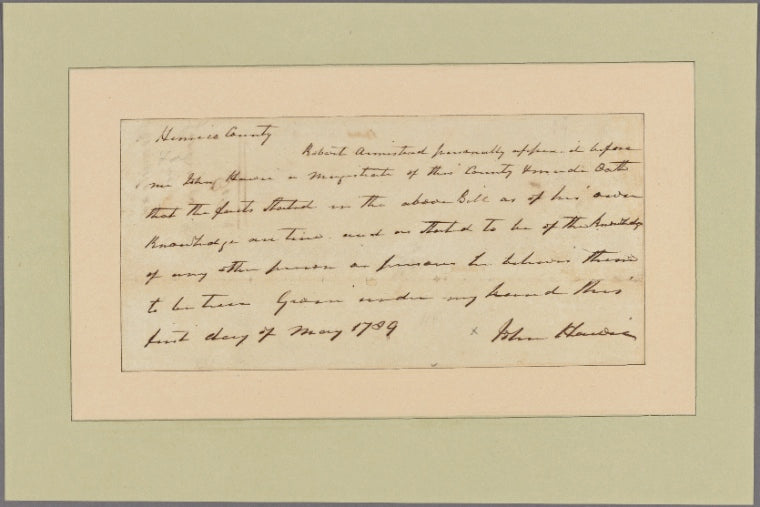 Henrico County
Robert Armistead personally appeared before
me John Harvie a Magistrate of this County & made Oath
that the facts stated in the above Bill as of his own
Knowledge are true and as stated to be of the Knowledge
of any other person or persons he believes them
to be true Given under my hand this
first day of May 1789
x John Harvie